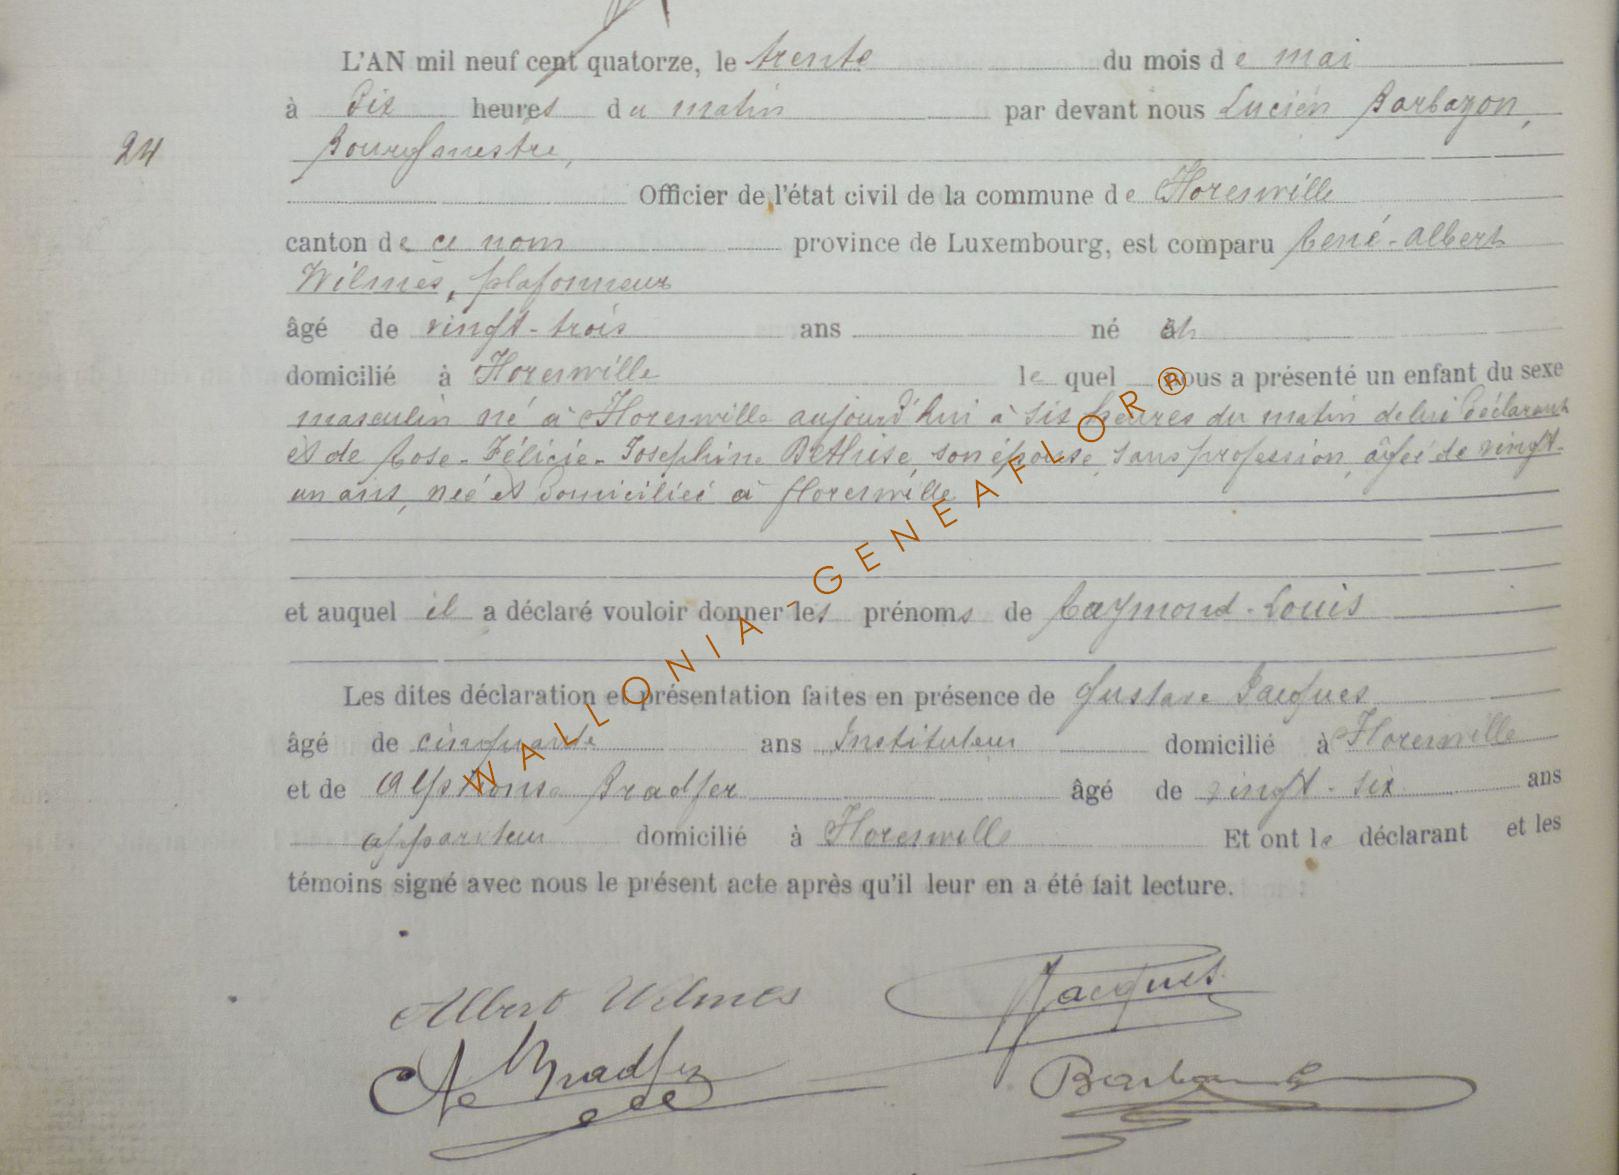 L'AN mil neuf cent quatorze, le trente du mois de mai
à dix heures du matin par devant nous Lucien Barbazon,
24 Bourgmestre,
Officier de l'état civil de la commune de Florenville
canton de ce nom province de Luxembourg, est comparu René-Albert
Wilmes, plafonneur
âgé de vingt-trois ans né et
domicilié à Florenville le quel nous a présenté un enfant du sexe
masculin né à Florenville aujourd'hui à six heures du matin de lui déclarant
et de Rose-Félicie-Josephine son épouse, sans profession, âgée de vingt-
un ans, née et domiciliée à Florenville
et auquel il a déclaré vouloir donner les prénoms de Raymond-Louis
Les dites déclaration et présentation faites en présence de Gustave Jacques
âgé de cinquante ans Instituteur domicilié à Florenville
et de Alphonse Bradfer âgé de vingt-six ans
appariteur domicilié à Florenville Et ont le déclarant et les
témoins signé avec nous le présent acte après qu'il leur en a été fait lecture.
Albert Wilmes Jacques
Bradfer
WALLONIA-GENEAFLOR®